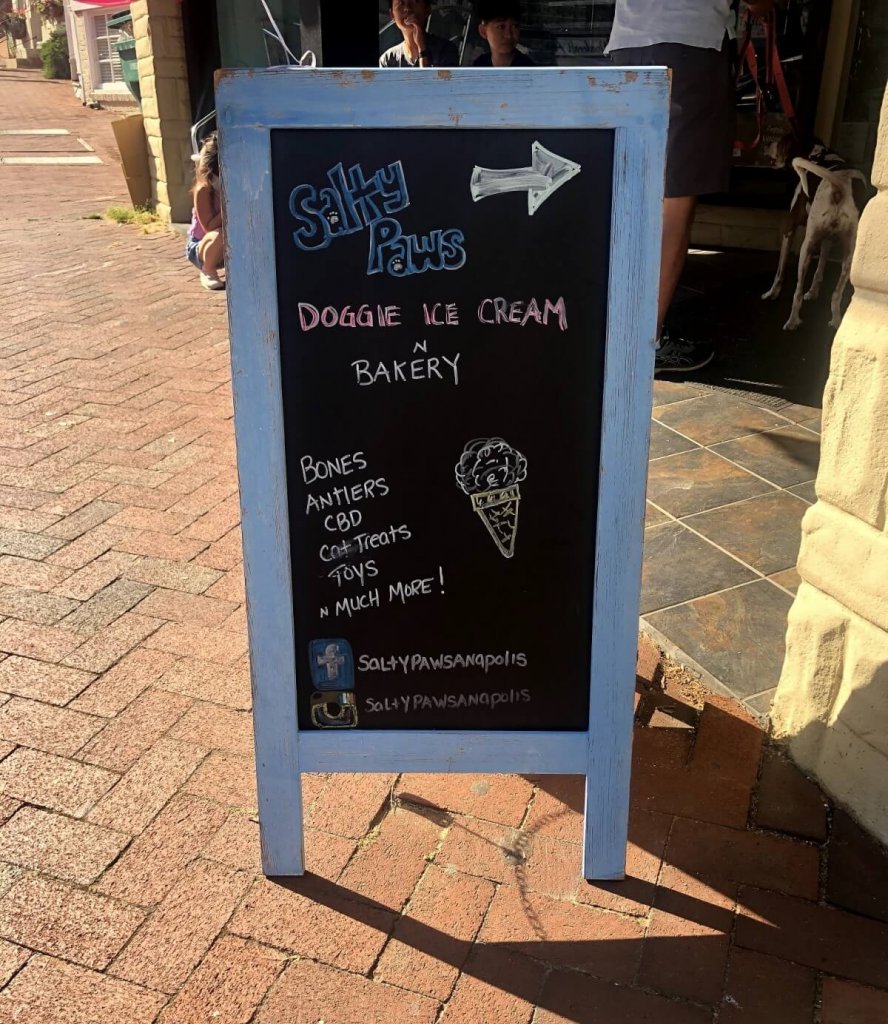 Salty
Paws
DOGGIE ICE CREAM
N
BAKERY
BONES
ANTlERS
CBD
cat Treats
TOYS
N MUCH MORE!
f SaltYPAWSANapolis
SaltYPAWSANapolis